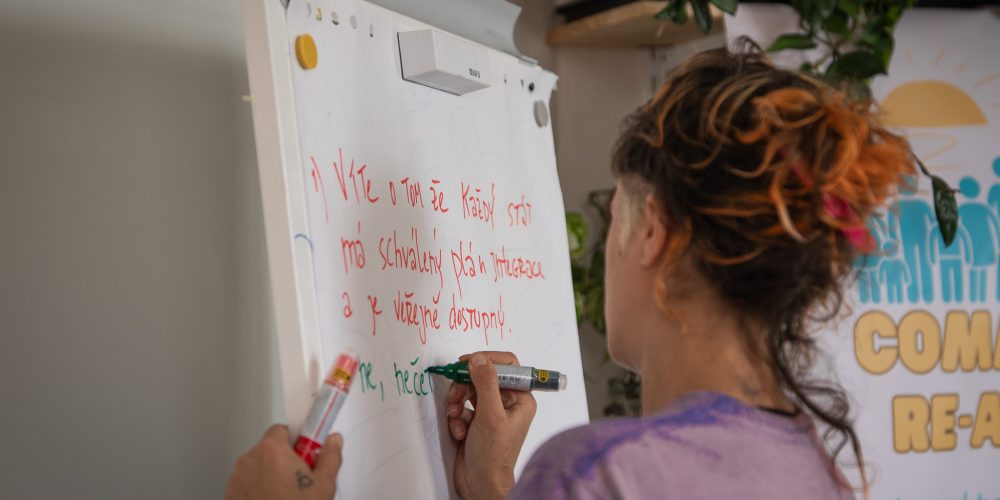 1) Víte o tom že každý stát
má schválený plán integrace
a je veřejně dostupný.
ne, nečet
COMA
RE-A